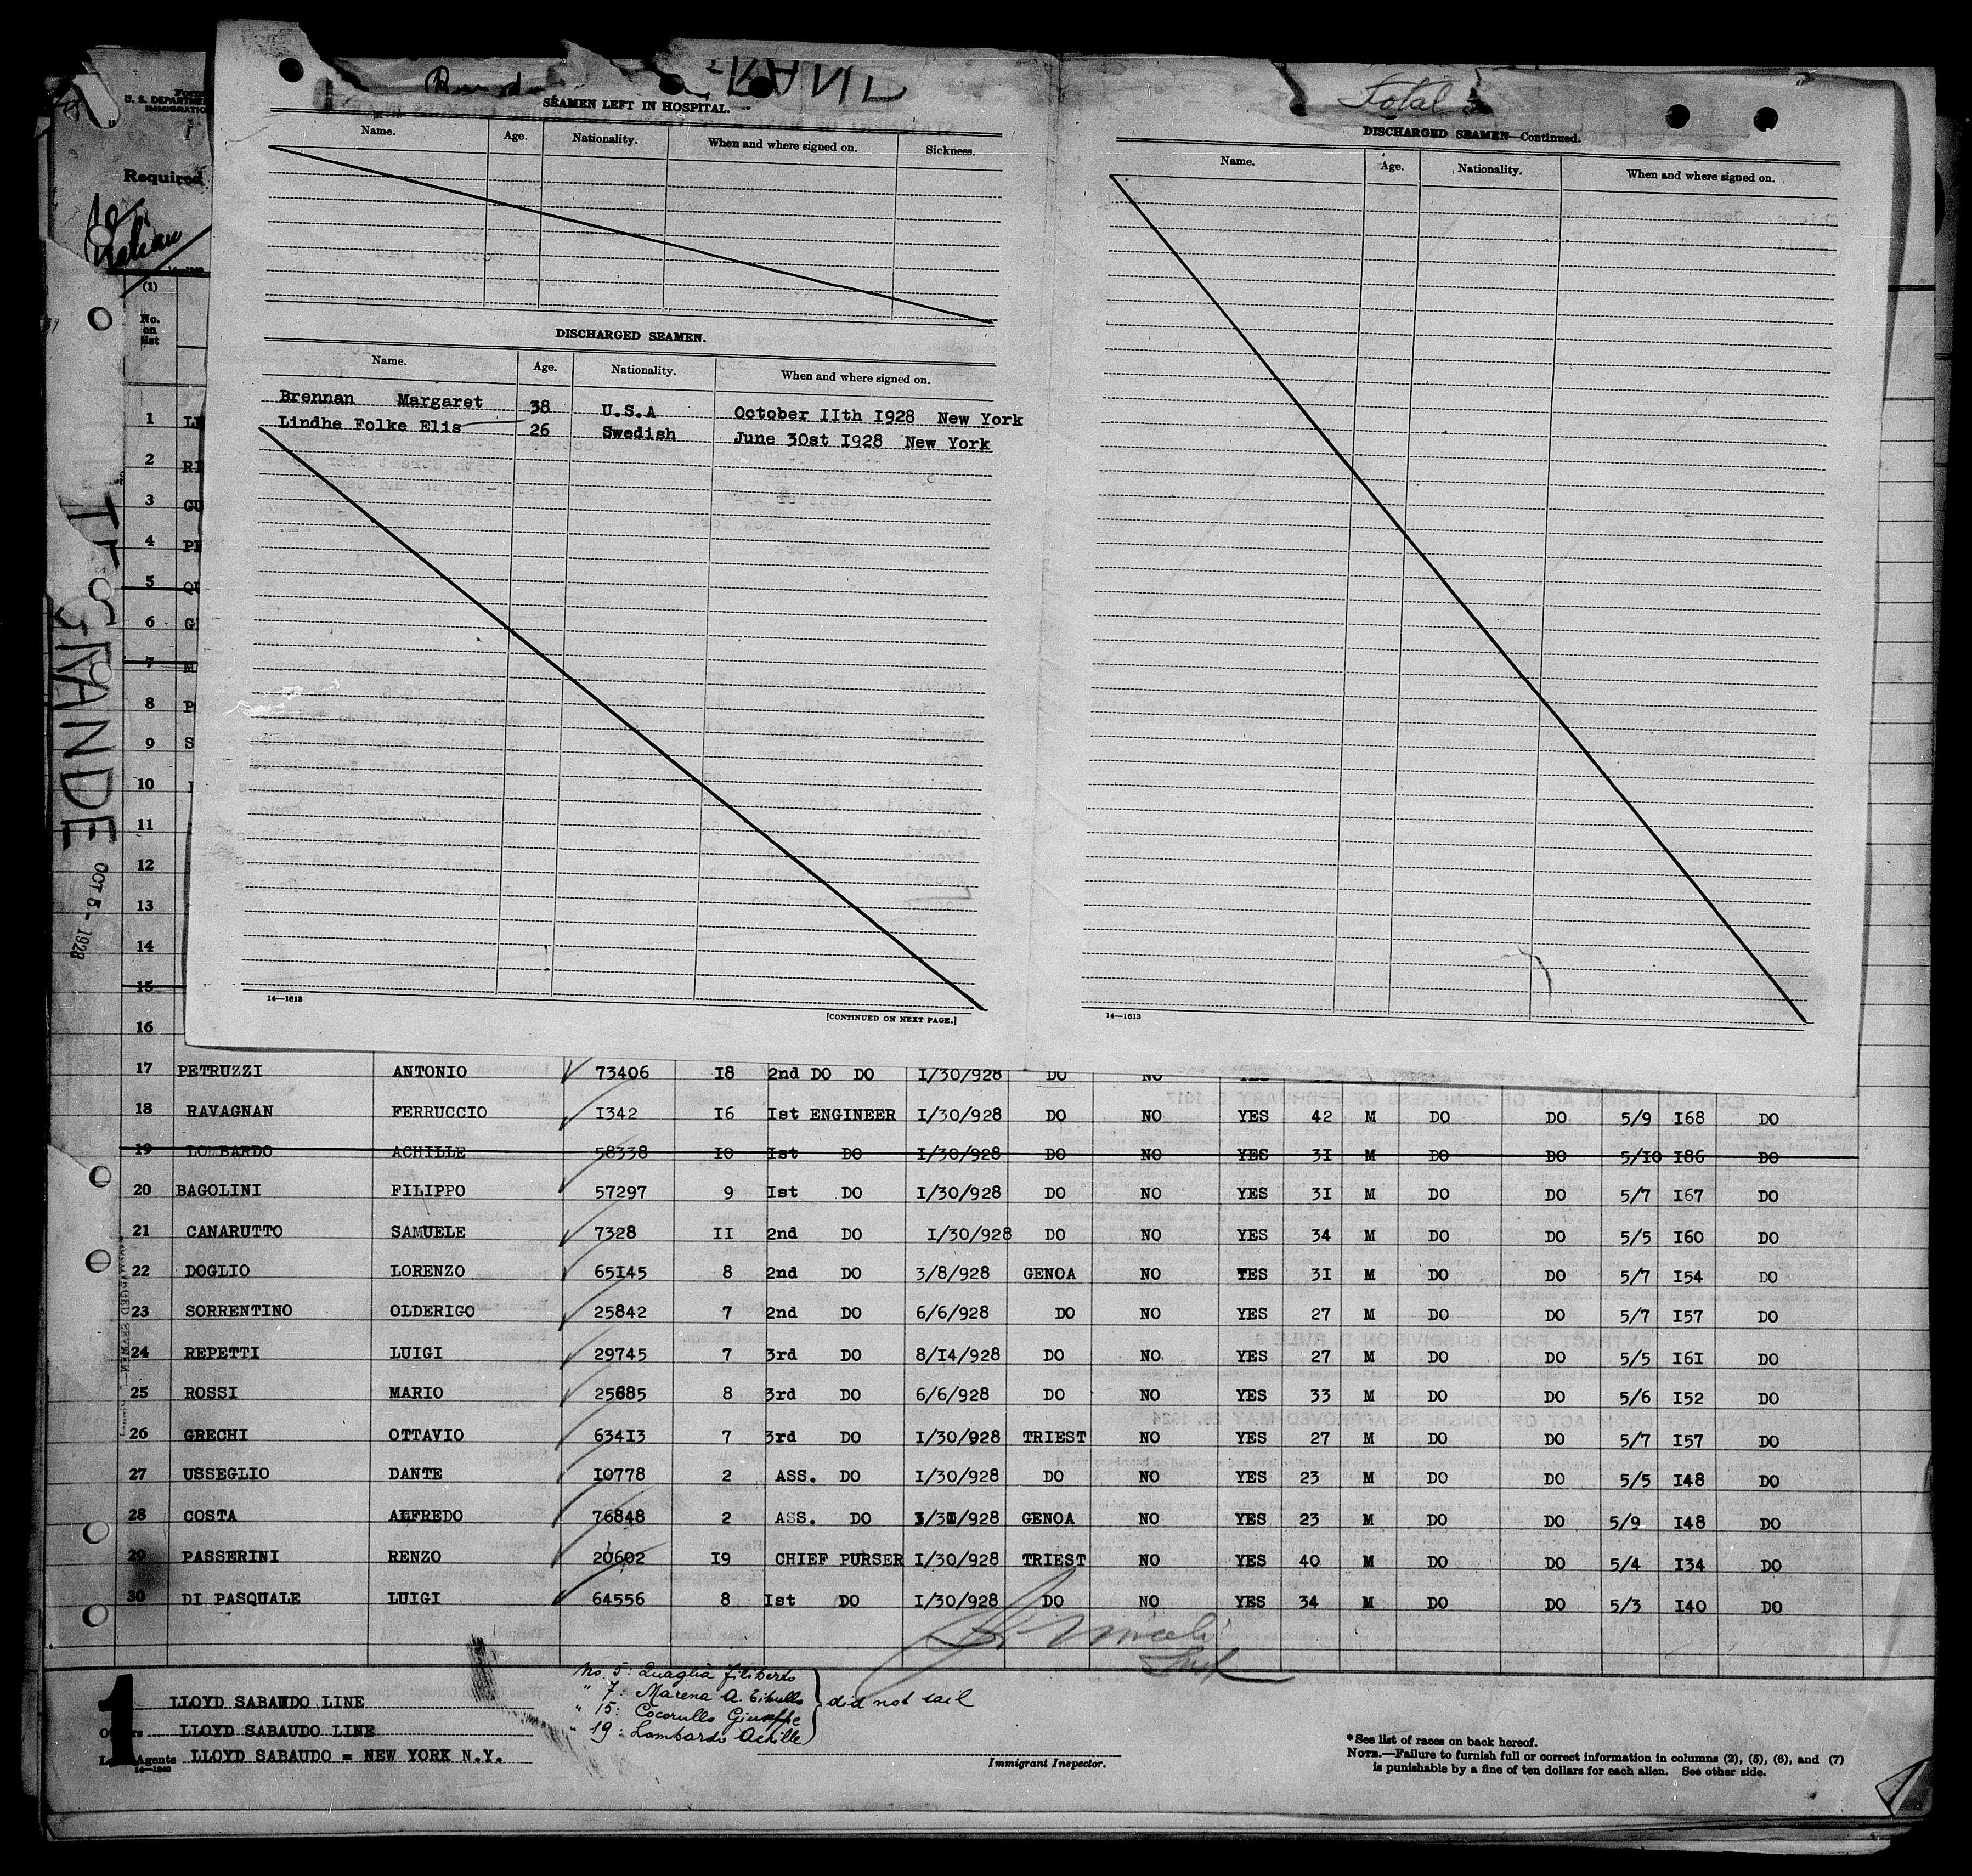 Form
U. S. DEPARTMENT
IMMIGRATION
Required
Italian
(1)
No.
on
list
Total
SEAMEN LEFT IN HOSPITAL.
Name. Age. Nationality. When and where signed on. Sickness.
DISCHARGED SEAMEN.
Name. Age. Nationality. When and where signed on.
Brennan Margaret 38 U.S.A October IIth I928 New York
Lindhe Folke Elis 26 Swedish June 30st I928 New York
14—1613
[CONTINUED ON NEXT PAGE.]
DISCHARGED SEAMEN—Continued.
Name. Age. Nationality. When and where signed on.
14—1613
GRANDE
OCT 5- 1928
1 LE
2 RI
3 GU
4 PE
5 QU
6 G
7 M
8 P
9 S
10
11
12
13
14
15
16
17 PETRUZZI ANTONIO 73406 I8 2nd DO DO I/30/928 DO NO YES
18 RAVAGNAN FERRUCCIO I342 I6 Ist ENGINEER I/30/928 DO NO YES 42 M DO DO 5/9 I68 DO
19 LOMBARDO ACHILLE 58338 IO Ist DO I/30/928 DO NO YES 3I M DO DO 5/IO I86 DO
20 BAGOLINI FILIPPO 57297 9 Ist DO I/30/928 DO NO YES 3I M DO DO 5/7 I67 DO
21 CANARUTTO SAMUELE 7328 II 2nd DO I/30/928 DO NO YES 34 M DO DO 5/5 I60 DO
22 DOGLIO LORENZO 65I45 8 2nd DO 3/8/928 GENOA NO YES 3I M DO DO 5/7 I54 DO
23 SORRENTINO OLDERIGO 25842 7 2nd DO 6/6/928 DO NO YES 27 M DO DO 5/7 I57 DO
24 REPETTI LUIGI 29745 7 3rd DO 8/I4/928 DO NO YES 27 M DO DO 5/5 I6I DO
25 ROSSI MARIO 25685 8 3rd DO 6/6/928 DO NO YES 33 M DO DO 5/6 I52 DO
26 GRECHI OTTAVIO 634I3 7 3rd DO I/30/928 TRIEST NO YES 27 M DO DO 5/7 I57 DO
27 USSEGLIO DANTE I0778 2 ASS. DO I/30/928 DO NO YES 23 M DO DO 5/5 I48 DO
28 COSTA ALFREDO 76848 2 ASS. DO GENOA NO YES 23 M DO DO 5/9 I48 DO
29 PASSERINI RENZO 20602 I9 CHIEF PURSER I/30/928 TRIEST NO YES 40 M DO DO 5/4 I34 DO
30 DI PASQUALE LUIGI 64556 8 Ist DO I/30/928 DO NO YES 34 M DO DO 5/3 I40 DO
1
LLOYD SABAUDO LINE
LLOYD SABAUDO LINE
Agents LLOYD SABAUDO = NEW YORK N.Y.
No. 5: Quaglia Filiberto
" 7: Marena A. Tibullo
" 15: Cocorullo Giuseppe
" 19: Lombardo Achille
did not sail
Immigrant Inspector.
*See list of races on back hereof.
NOTE.—Failure to furnish full or correct information in columns (2), (5), (6), and (7)
is punishable by a fine of ten dollars for each alien. See other side.